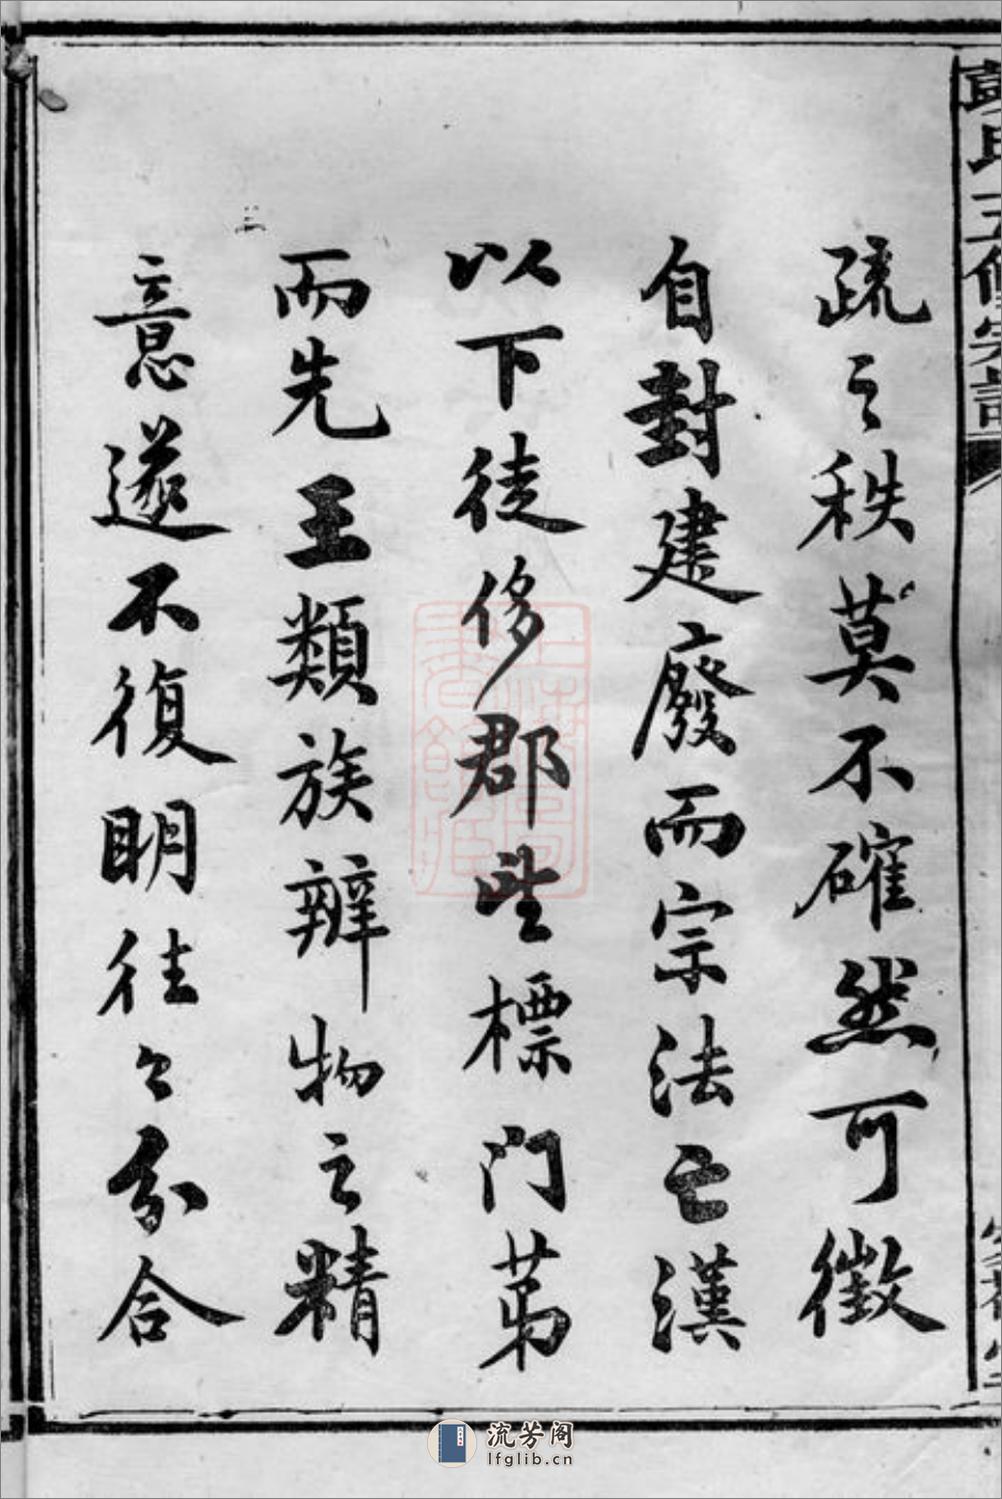 疏之秩莫不確然可徵
自封建廢而宗法亡漢
以下徒侈郡望標門苐
而先王類族辨物之精
意遂不復明往〻分合
彭氏五修宗譜
流芳阁
lfglib.cn